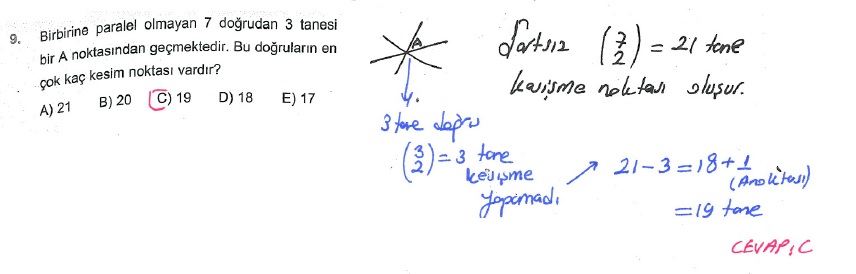 9. Birbirine paralel olmayan 7 doğrudan 3 tanesi
bir A noktasından geçmektedir. Bu doğruların en
çok kaç kesim noktası vardır?
A) 21 B) 20 C) 19 D) 18 E) 17
A
Şartsız (7 2) = 21 tane
kesişme noktası oluşur.
3 tane doğru
(3 2) = 3 tane
kesişme
yapamadı
21 - 3 = 18 + 1
(A noktası)
= 19 tane
CEVAP: C